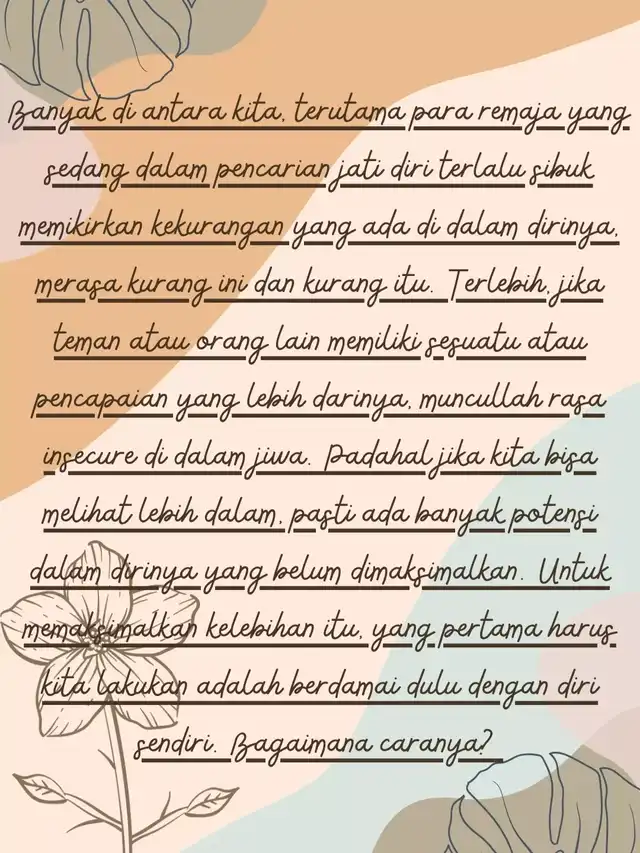 Banyak di antara kita, terutama para remaja yang
sedang dalam pencarian jati diri terlalu sibuk
memikirkan kekurangan yang ada di dalam dirinya,
merasa kurang ini dan kurang itu. Terlebih, jika
teman atau orang lain memiliki sesuatu atau
pencapaian yang lebih darinya, muncullah rasa
insecure di dalam jiwa. Padahal jika kita bisa
melihat lebih dalam, pasti ada banyak potensi
dalam dirinya yang belum dimaksimalkan. Untuk
memaksimalkan kelebihan itu, yang pertama harus
kita lakukan adalah berdamai dulu dengan diri
sendiri. Bagaimana caranya?